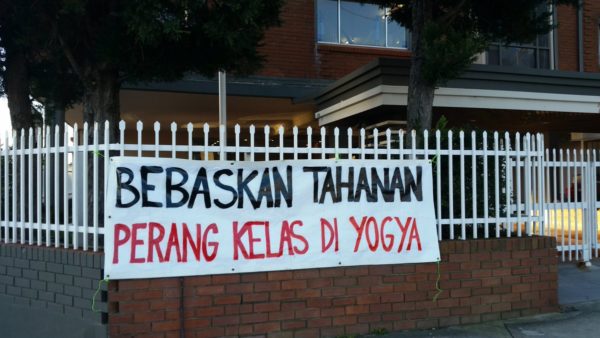 BEBASKAN TAHANAN
PERANG KELAS DI YOGYA